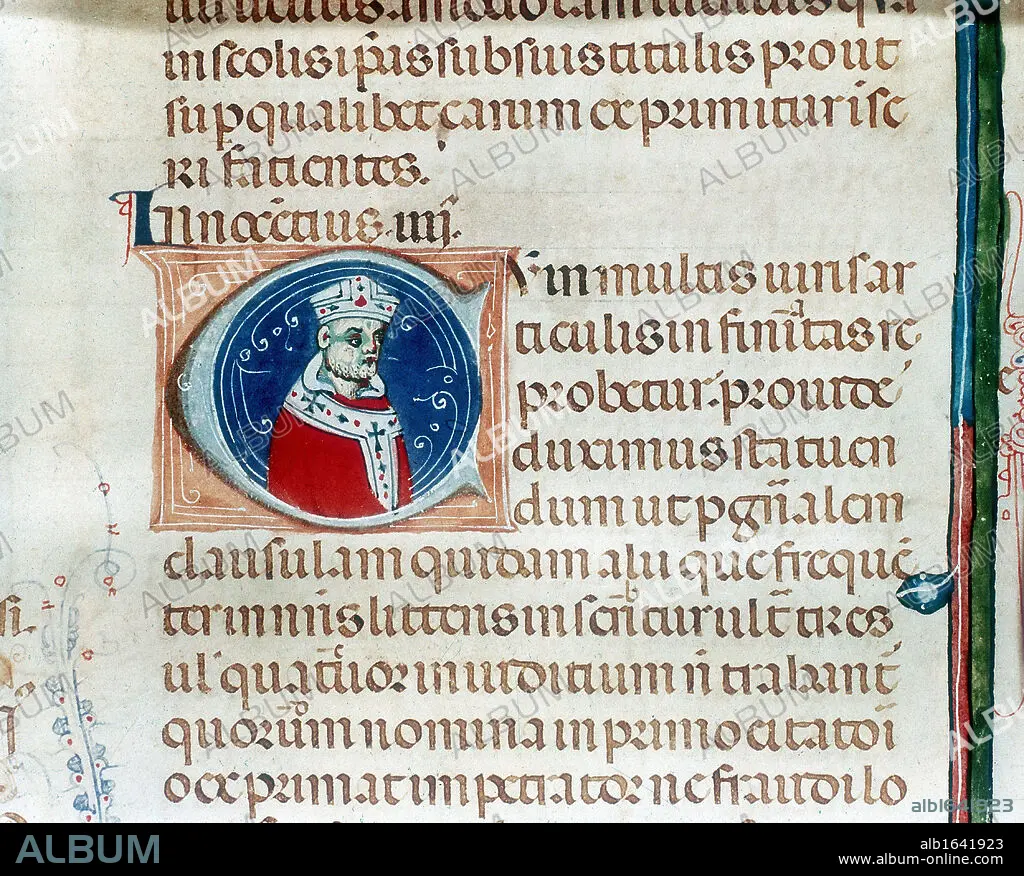 in scolis ip̃as sub suis titulis prout
sup qualibet earum exprimitur isc̃
ri facientes.
Innocẽtius. iiij.
Cum in multis iuris ar
ticulis infinitas re
probetur. prouide
duximus statuen
dum ut p gñalem
clausulam quidam alii que frequẽ
ter in ñris litteris inscribitur ultͣ tres
ul' quatuor in iuditium ñ trahantͬ
quorum nomina in primo citatoi
o exprimat impetrator ne fraudi lo
ALBUM
alb1641923
www.album-online.com